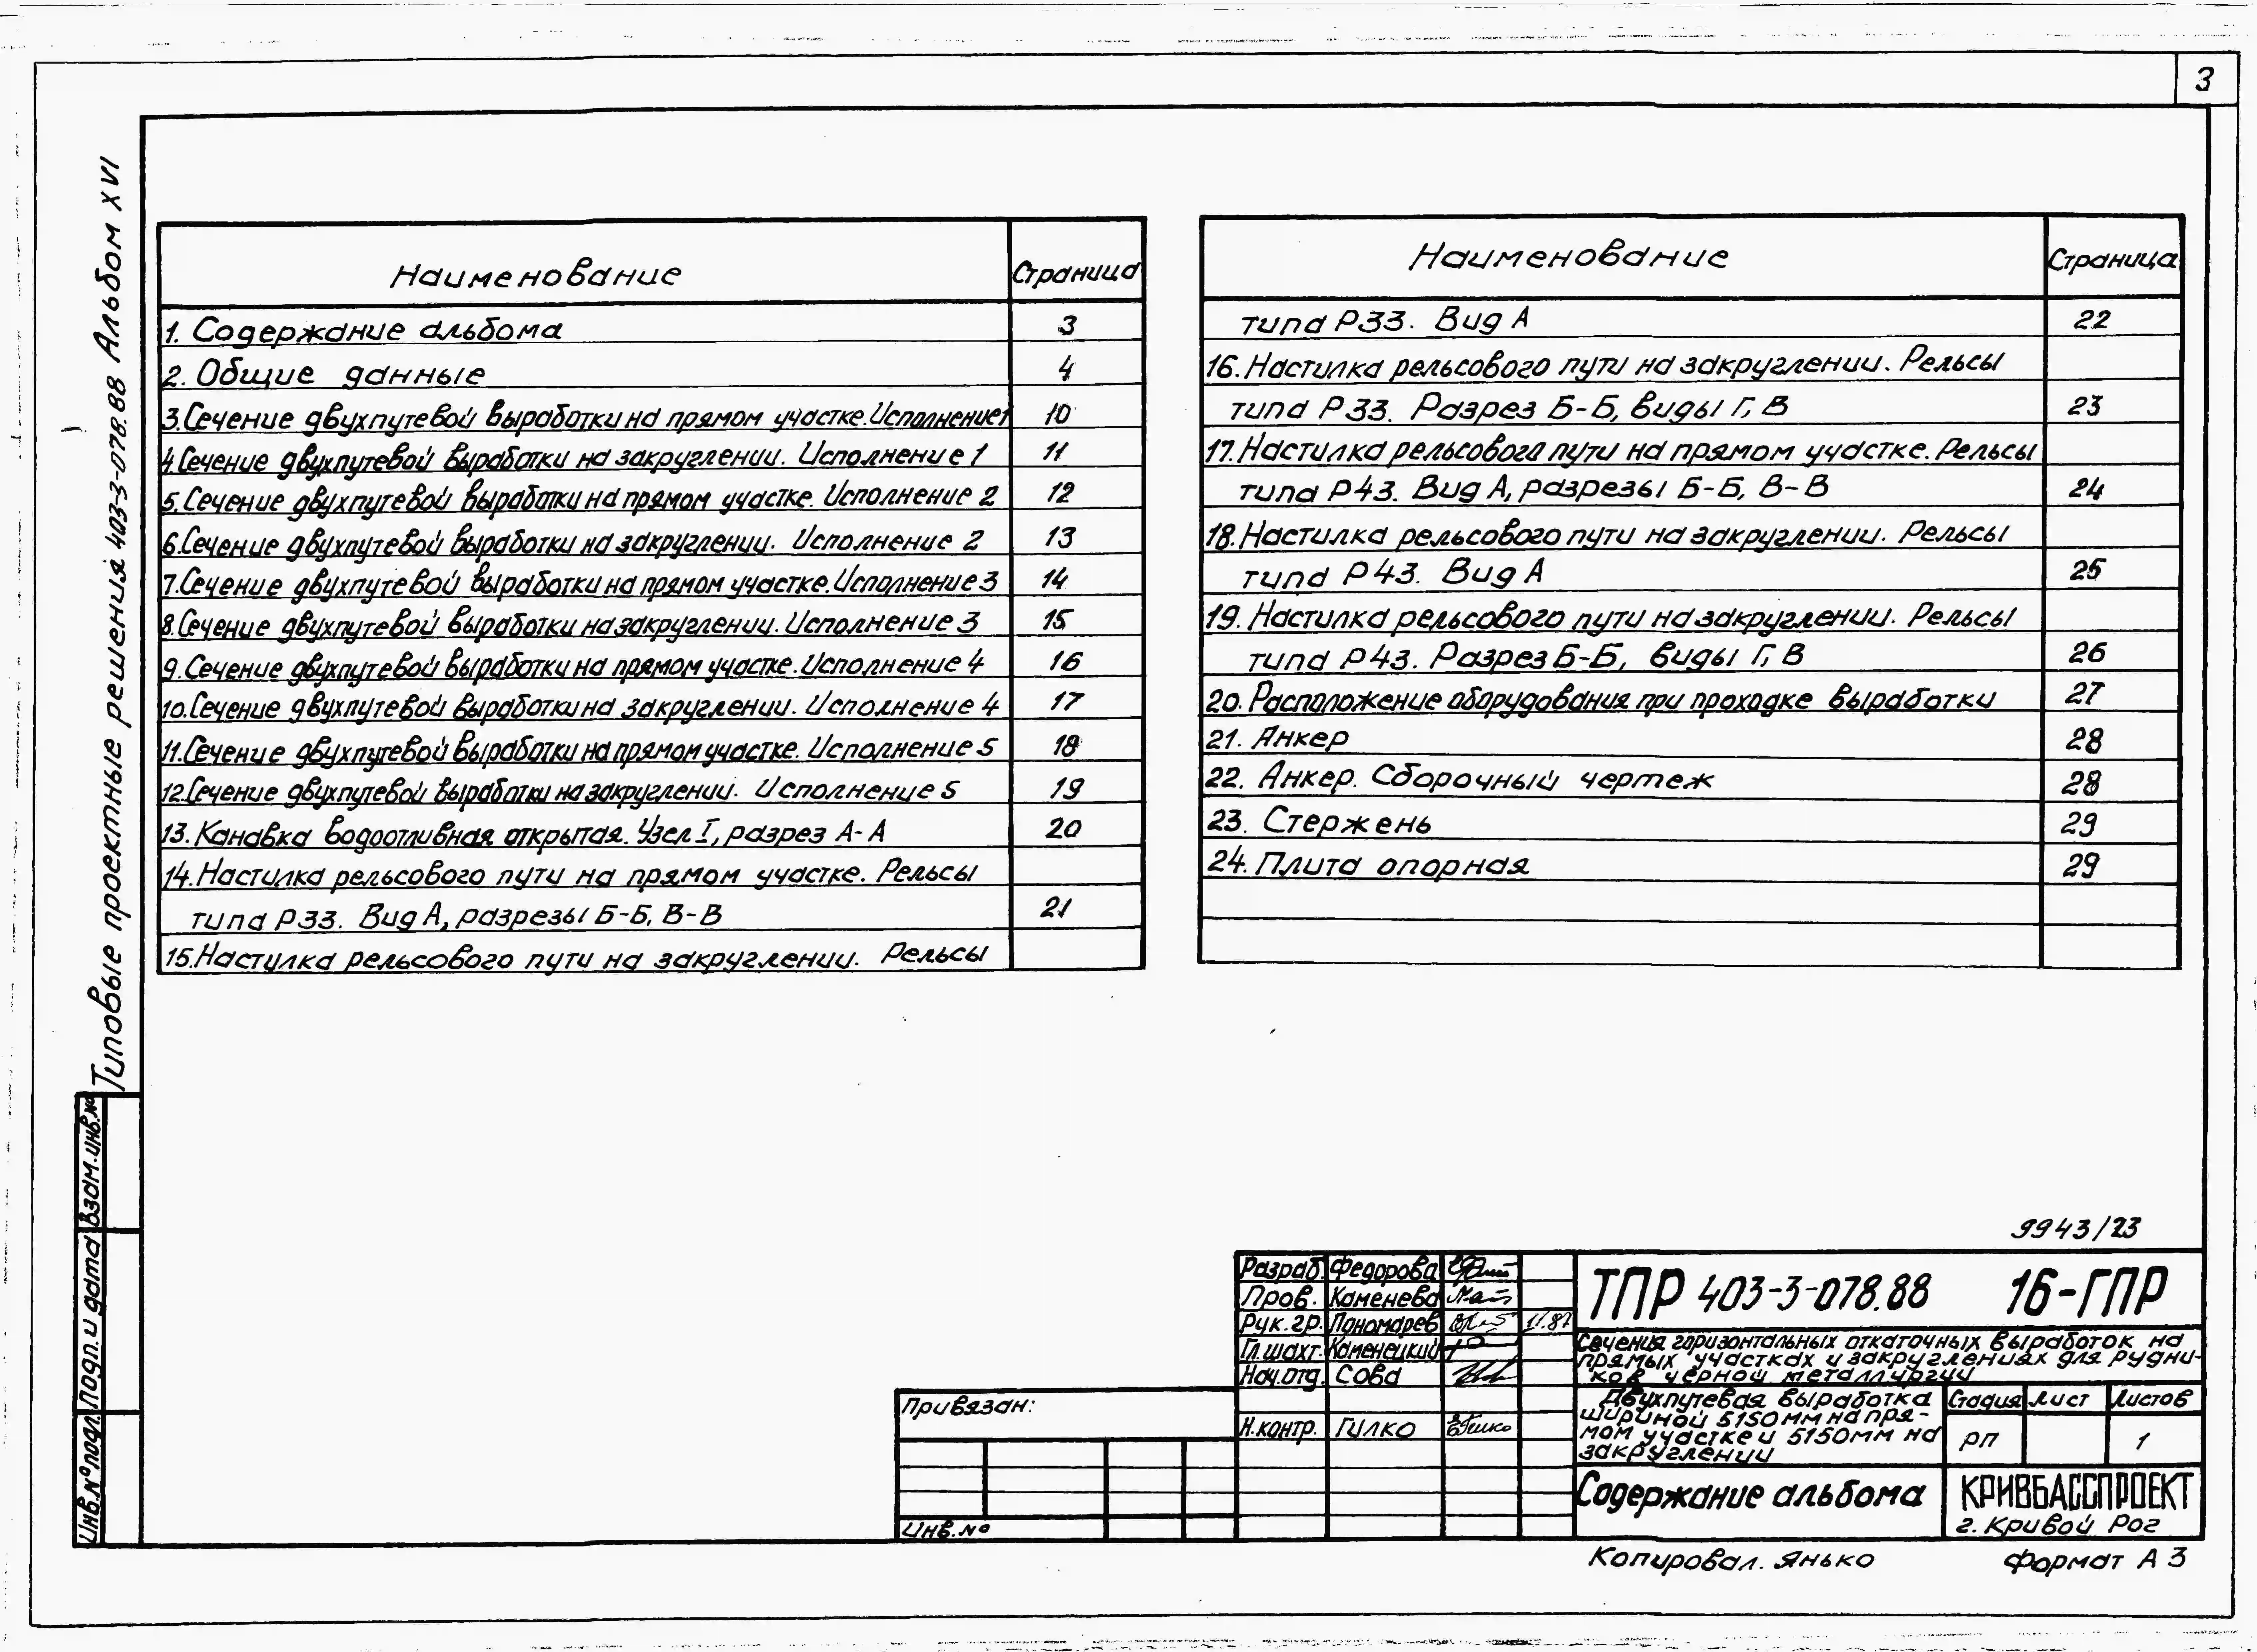 3
Типовые проектные решения 403-3-078.88 Альбом XVI
Наименование Страница
1. Содержание альбома 3
2. Общие данные 4
3. Сечение двухпутевой выработки на прямом участке. Исполнение 1 10
4. Сечение двухпутевой выработки на закруглении. Исполнение 1 11
5. Сечение двухпутевой выработки на прямом участке. Исполнение 2 12
6. Сечение двухпутевой выработки на закруглении. Исполнение 2 13
7. Сечение двухпутевой выработки на прямом участке. Исполнение 3 14
8. Сечение двухпутевой выработки на закруглении. Исполнение 3 15
9. Сечение двухпутевой выработки на прямом участке. Исполнение 4 16
10. Сечение двухпутевой выработки на закруглении. Исполнение 4 17
11. Сечение двухпутевой выработки на прямом участке. Исполнение 5 18
12. Сечение двухпутевой выработки на закруглении. Исполнение 5 19
13. Канавка водоотливная открытая. Узел I, разрез А-А 20
14. Настилка рельсового пути на прямом участке. Рельсы
типа Р33. Вид А, разрезы Б-Б, В-В 21
15. Настилка рельсового пути на закруглении. Рельсы
Наименование Страница
типа Р33. Вид А 22
16. Настилка рельсового пути на закруглении. Рельсы
типа Р33. Разрез Б-Б, виды Г, В 23
17. Настилка рельсового пути на прямом участке. Рельсы
типа Р43. Вид А, разрезы Б-Б, В-В 24
18. Настилка рельсового пути на закруглении. Рельсы
типа Р43. Вид А 25
19. Настилка рельсового пути на закруглении. Рельсы
типа Р43. Разрез Б-Б, виды Г, В 26
20. Расположение оборудования при проходке выработки 27
21. Анкер 28
22. Анкер. Сборочный чертеж 28
23. Стержень 29
24. Плита опорная 29
Взам. инв. №
Подп. и дата
Инв. № подл.
9943/23
Разраб. Федорова
Пров. Каменева
Рук. гр. Пономарев 11.87
Гл. шахт. Каменецкий
Нач. отд. Сова
Н. контр. Гилко
Привязан:
Инв. №
ТПР 403-3-078.88 16-ГПР
Сечения горизонтальных откаточных выработок на
прямых участках и закруглениях для рудни-
ков черной металлургии
Двухпутевая выработка
шириной 5150мм на пря-
мом участке и 5150мм на
закруглении
Стадия Лист Листов
РП 1
Содержание альбома
КРИВБАССПРОЕКТ
г. Кривой Рог
Копировал. Янько Формат А3